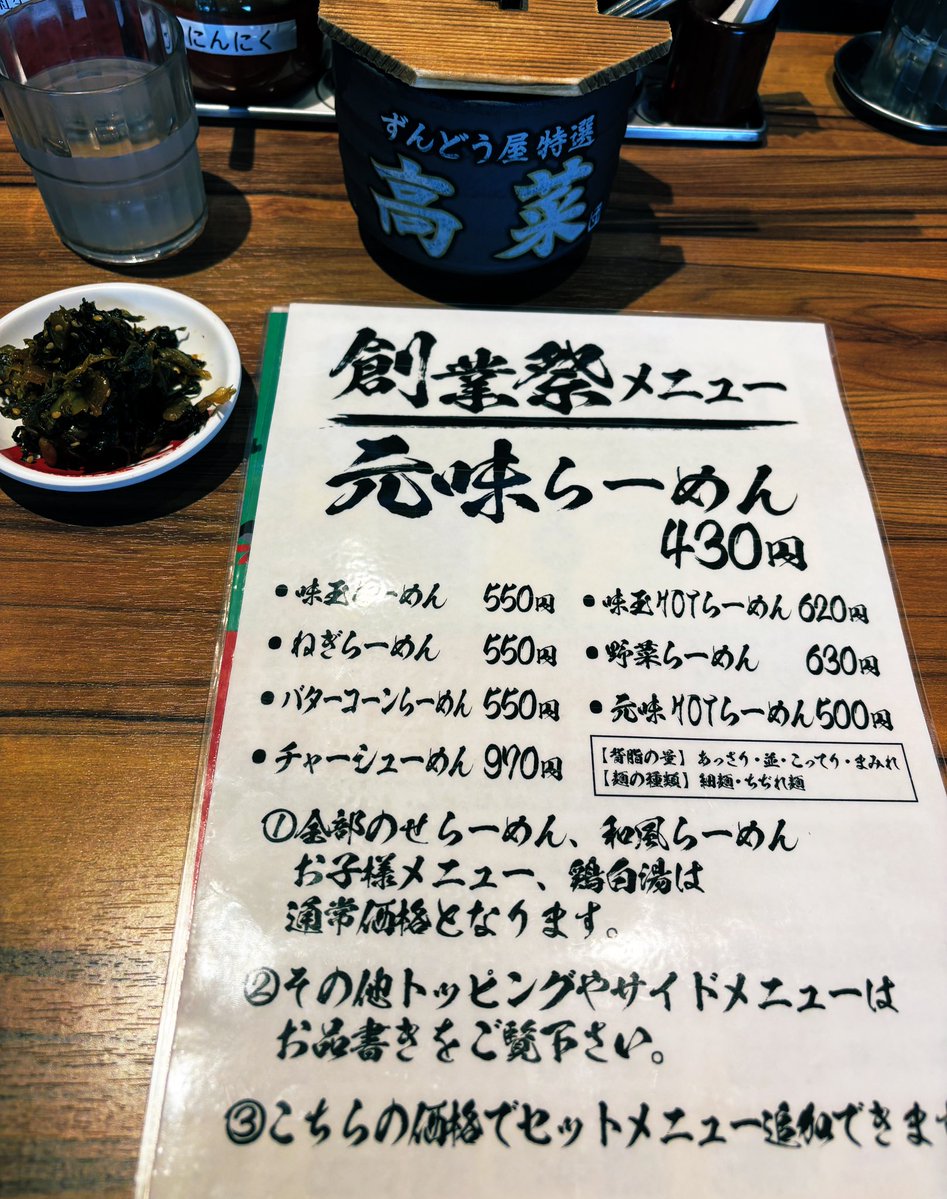 にんにく
ずんどう屋特選
高菜
創業祭メニュー
元味らーめん
430円
•味玉らーめん 550円
•味玉HOTらーめん 620円
•ねぎらーめん 550円
•野菜らーめん 630円
•バターコーンらーめん 550円
•元味HOTらーめん 500円
•チャーシューめん 970円
【背脂の量】 あっさり・並・こってり・まみれ
【麺の種類】 細麺・ちぢれ麺
①全部のせらーめん、和風らーめん
お子様メニュー、鶏白湯は
通常価格となります。
②その他トッピングやサイドメニューは
お品書きをご覧下さい。
③こちらの価格でセットメニュー追加できます